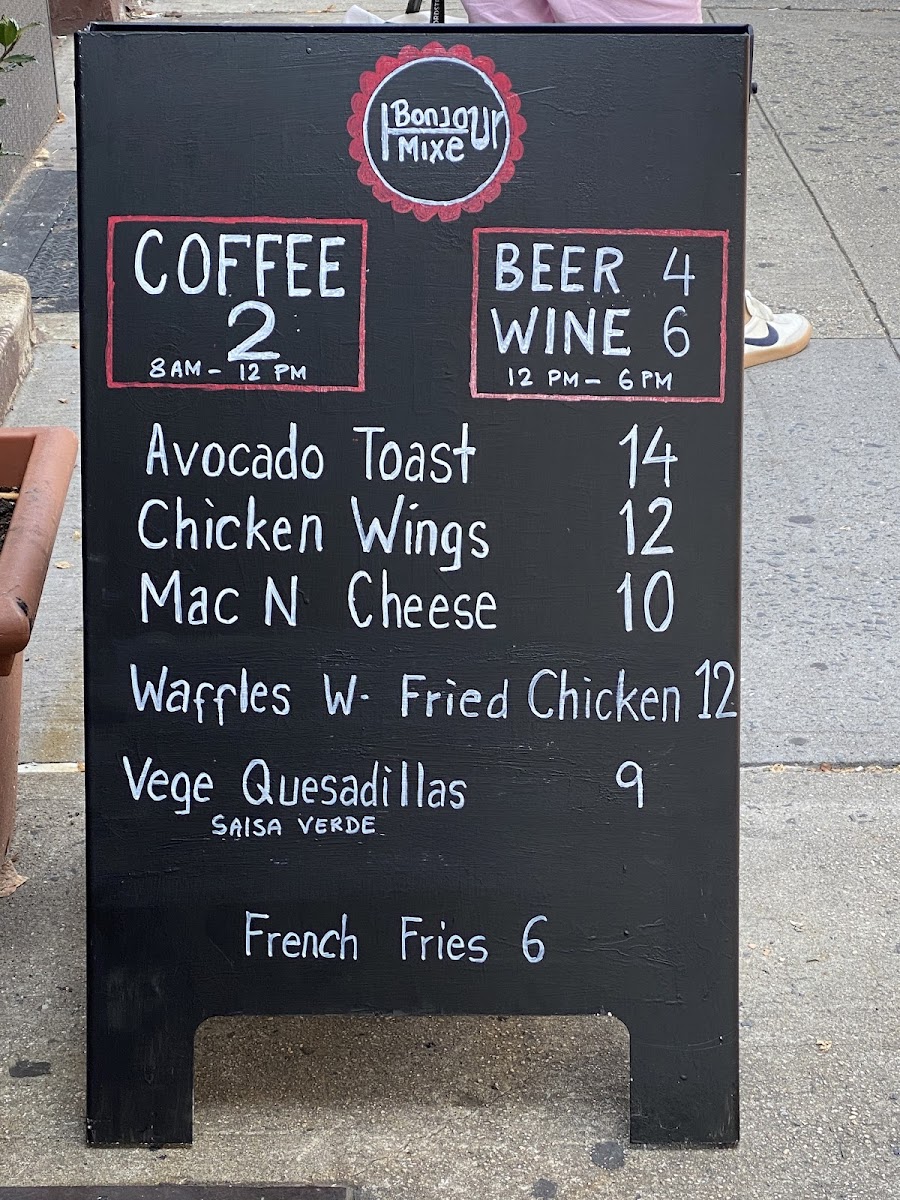 Bonjour
Mixe
COFFEE
2
8 AM - 12 PM
BEER 4
WINE 6
12 PM - 6 PM
Avocado Toast 14
Chicken Wings 12
Mac N Cheese 10
Waffles W- Fried Chicken 12
Vege Quesadillas 9
SALSA VERDE
French Fries 6